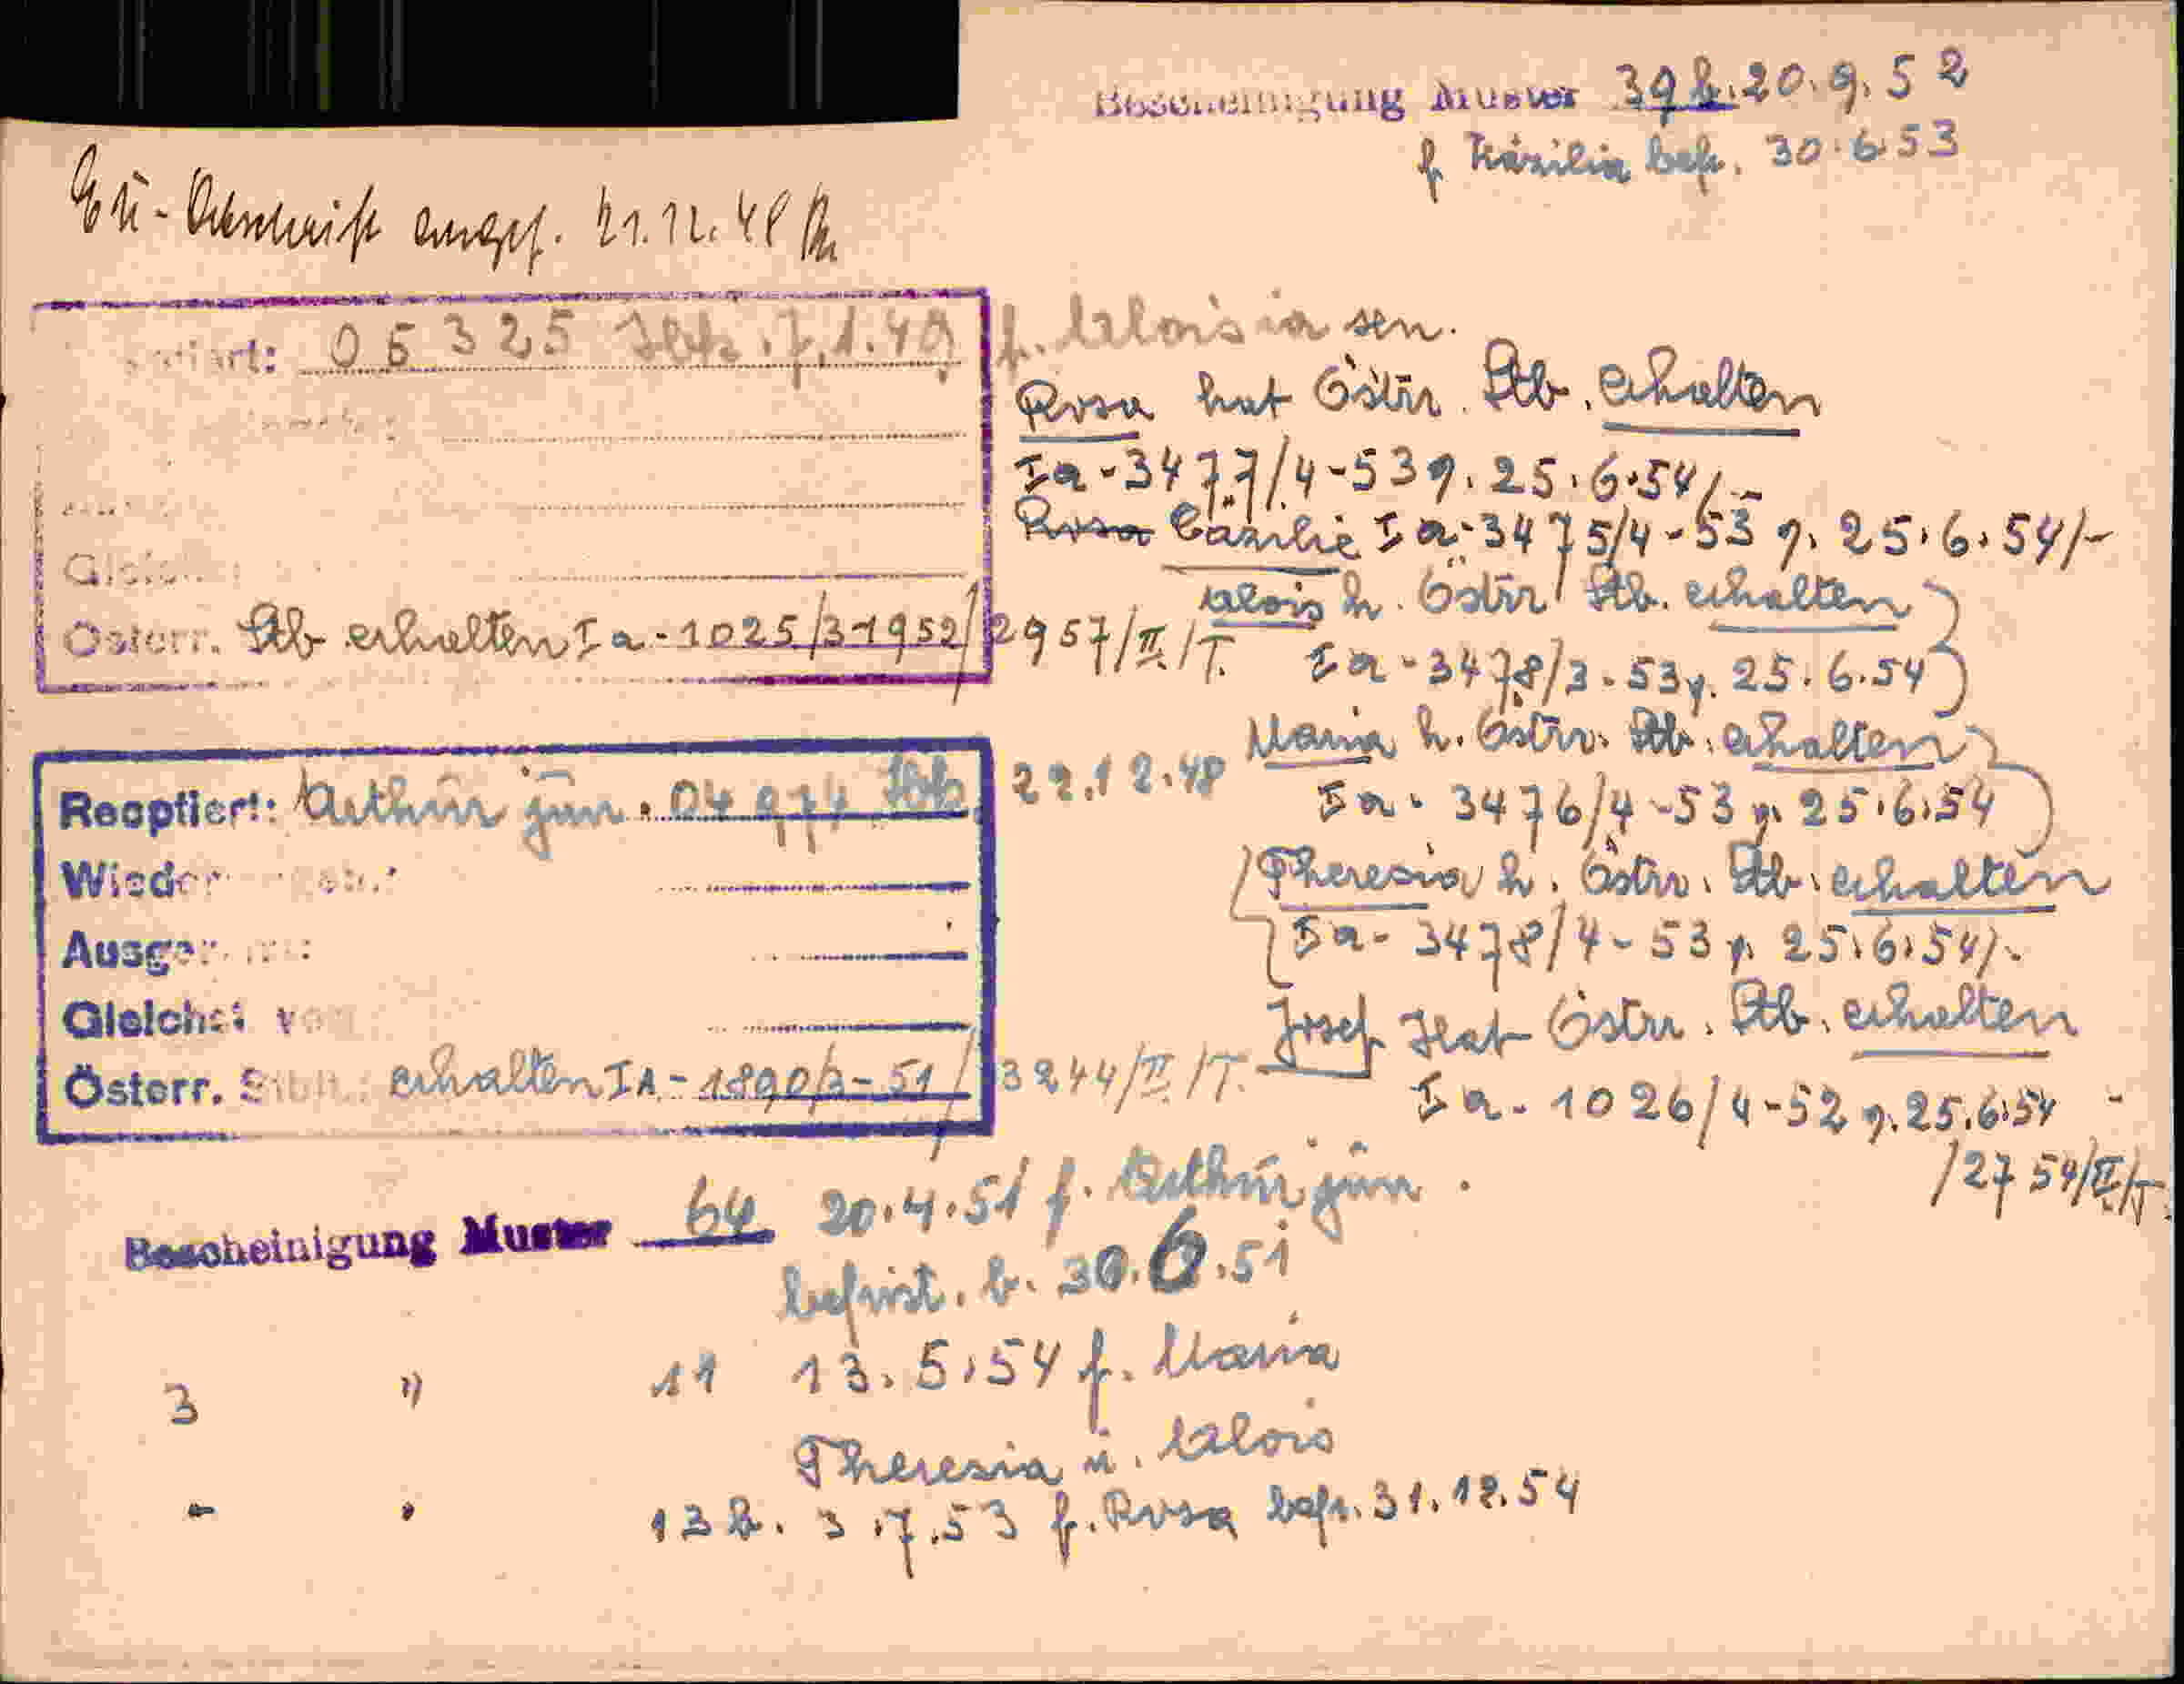 Bescheinigung Muster 39 b. 20.9.52
f. Käzilia befr. 30.6.53
EU-Abschrift angef. 21.12.48
05325 Hbk. 7.1.49 f. Aloisia sen.
Rosa hat Östrr. Stb. erhalten
Ia-3477/4-53 v. 25.6.54/-
Rosa Cäzilie Ia-3475/4-53 v. 25.6.54/-
Gleich
Alois h. Östrr. Stb. erhalten
Österr. Stb erhalten Ia-1025/3-1952/2957/II/T.
Ia-3478/3-53 v. 25.6.54
Maria h. Östrr. Stb. erhalten
Reoptiert: Arthur jun. 04974 Hbk. 22.12.48
Ia-3476/4-53 v. 25.6.54
Theresia h. Östrr. Stb. erhalten
Ia-3478/4-53 v. 25.6.54/-
Gleichst von
Josef Hat Östrr. Stb. erhalten
Österr. Stbh.: erhalten IA-1890/3-51/3244/II/T.
Ia-1026/4-52 v. 25.6.54 -
/2754/II/T.
Bescheinigung Muster 64 20.4.51 f. Arthur jun.
befrist. b. 30.6.51
3 " 11 13.5.54 f. Maria
Theresia u. Alois
- " 13 b. 3.7.53 f. Rosa befr. 31.12.54